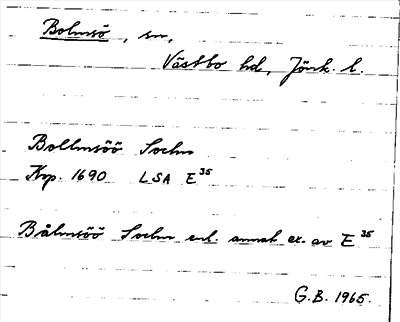 Bolmsö, sn,
Västbo hd, Jönk. l.
Bollmsöö Sochn
Kop. 1690 LSA E 35
Bålmsöö Sochn enl. annat ex. av E 35
G.B. 1965.